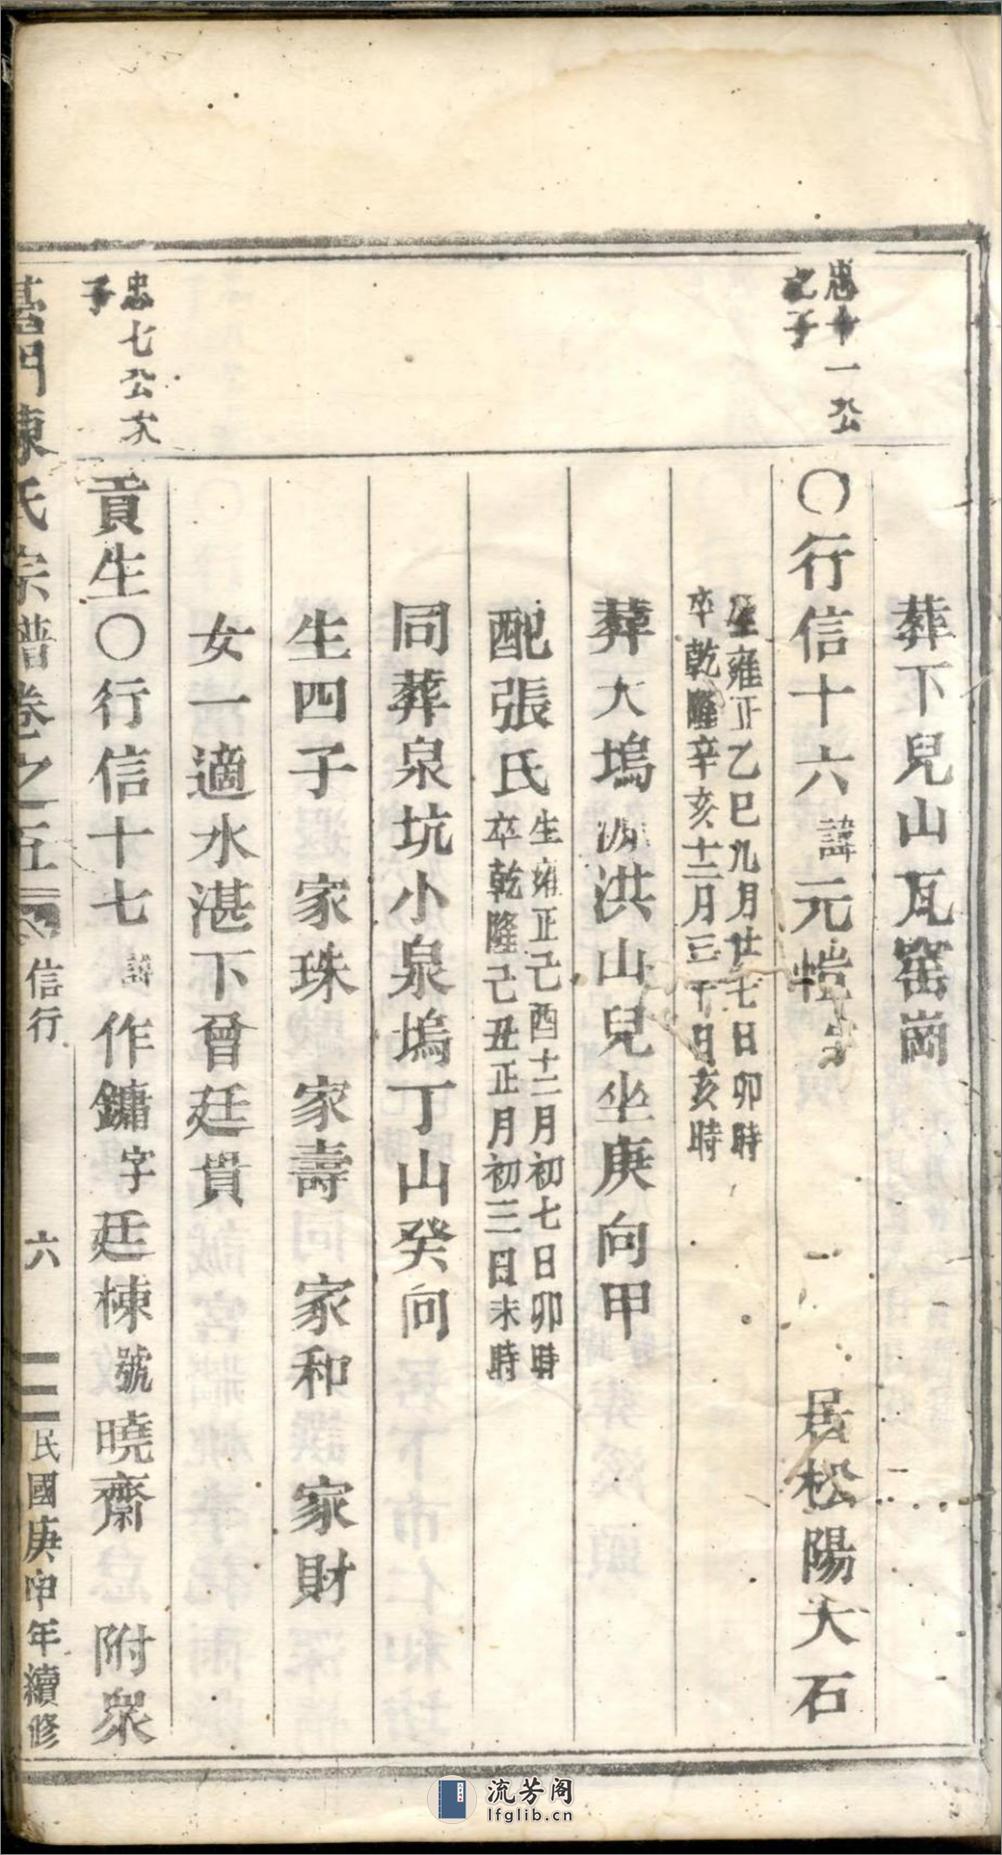 葬下兒山瓦窑崗
忠十一公
之子
〇行信十六諱元愷字 居松陽大石
生雍正乙巳九月廿七日卯時
卒乾隆辛亥十二月三十日亥時
葬大塢源洪山兒坐庚向甲
配張氏
生雍正己酉十二月初七日卯時
卒乾隆己丑正月初三日未時
同葬泉坑小泉塢丁山癸向
生四子 家珠 家壽 家和 家財
女一適水湛下曾廷貴
忠七公次
子
貢生〇行信十七諱作鏞字廷棟號曉齋 附眾
臺門陳氏宗譜卷之五 信行 六 民國庚申年續修
流芳阁
lfglib.cn